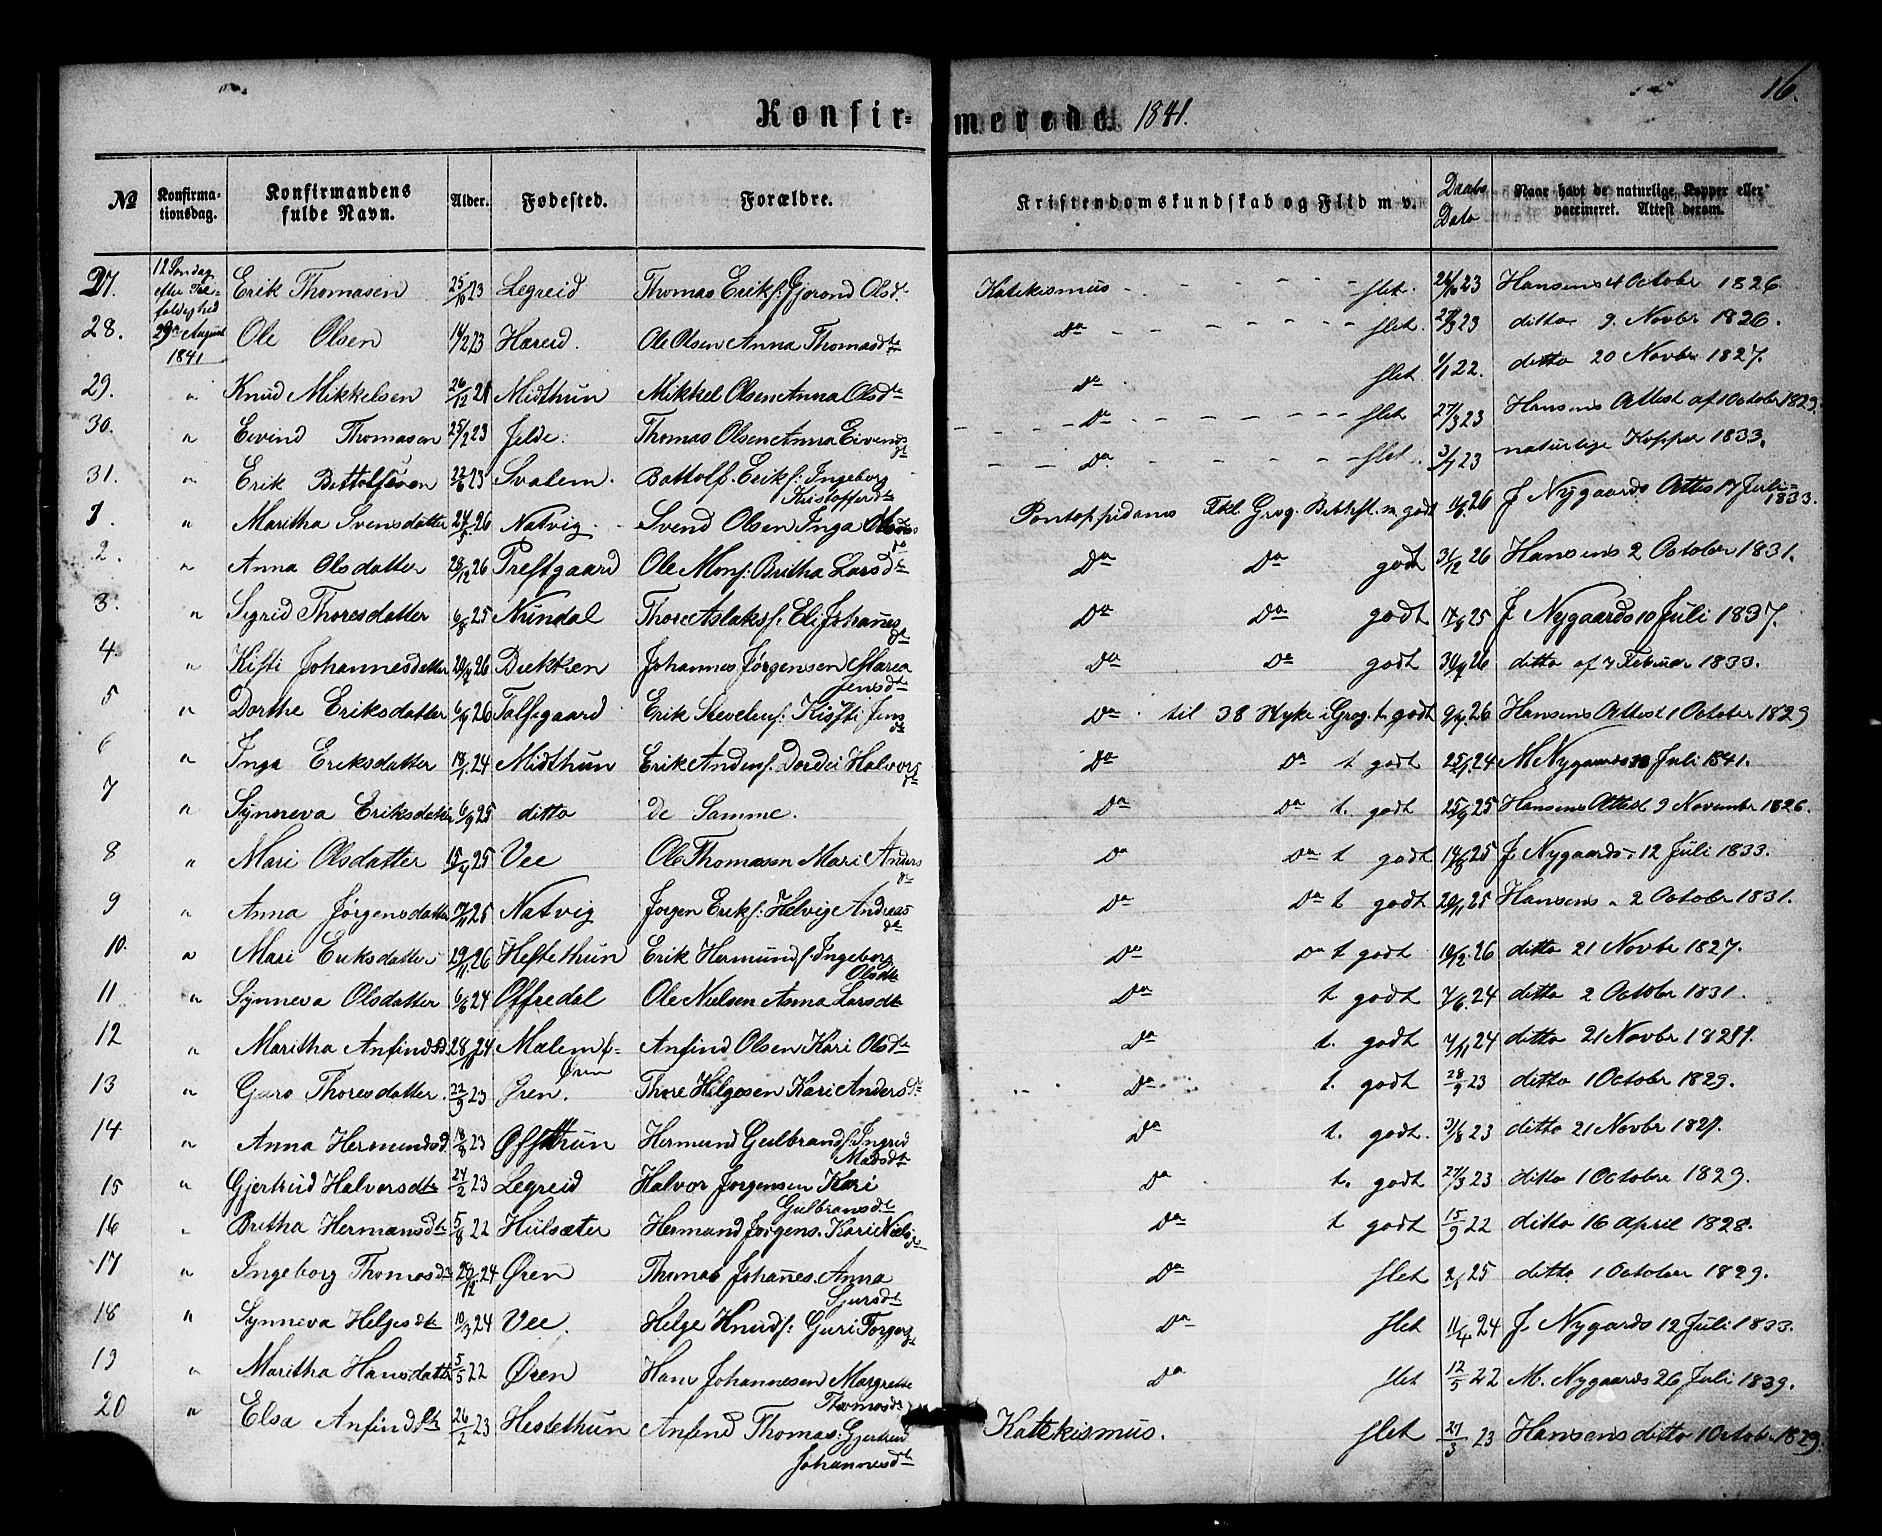 16.
Konfir- merede. 1841.
No Konfirmationsdag. Konfirmandens fulde Navn. Alder. Fødested. Forældre. Kristendomskundskab og Flid m v. Daabs Dato Naar havt de naturlige Kopper eller vaccineret. Attest derom.
27. 12 Søndag efter Trefoldighed 29n August 1841 Erik Thomasen 25/10 23 Legreid Thomas Eriks: Gjorond Olsdt Katekismus - - - - slet. 26/10 23 Hansens 4 October 1826
28. Ole Olsen 14/2 23 Hæreid. Ole Olsen Anna Thomasdtr Da - - - - slet. 27/3 23 ditto 9. Novbr 1826.
29. " Knud Mikkelsen 26/12 21 Midthun Mikkel Olsen Anna Olsdtr Da slet 1/1 22. ditto 20 Novbr 1827.
30. " Eivind Thomasen 25/2 23 Jelde. Thomas Olsen Anna Eivendsdt - Da - - - - slet 27/3 23 Hansens Attest af 1 October 1829.
31. " Erik Bottolfsen 22/6 23 Svalem. Bottolf Eriks: Ingeborg Kristofferdtr - - Da - - - slet 3/7 23 naturlige Kopper 1833.
1. " Maritha Svensdatter 24/5 26 Natvig. Svend Olsen Inga Pontoppidans Fkl. Grog. Bethft. m. godt 11/6 26 J Nygaards Attes 17 Juli 1833.
2. " Anna Olsdatter 28/12 26 Prestgaard Ole Mons: Britha Larsdtr Da Da godt 31/12 26 Hansens 2 October 1831.
3. " Sigrid Thoresdatter 6/8 25 Nundal Thore Aslaks: Eli Johannesdt Da Da godt 17/8 25 J Nygaards 10 Juli 1837.
4. " Kisti Johannesdatter 20/4 26 Bækken Johannes Jørgensen Maria Jensdtr Da Da godt 30/4 26 ditto af 7 Februar 1833.
5 " Dorthe Eriksdatter 6/4 26 Talfsgaard Erik Stevelens: Kisti Jensdt Da til 38 Styke i Grog. t. godt 9/4 26 Hansens Attest 1 October 1829
6 " Inga Eriksdatter 18/1 24 Midthun Erik Anders: Dordei Halvorsdt Da Da t godt 25/1 24 M Nygaards Juli 1841.
7 " Synneva Eriksdatter 6/9 25 ditto De Samme. Da Da t. godt 25/9 25 Hansens Attest 9 November 1826.
8 " Mari Olsdatter 15/4 25 Vee Ole Thomasen Mari Andersdt Da Da t godt 14/8 25 J Nygaards 12 Juli 1833.
9 " Anna Jørgensdatter 17/11 25 Natvig Jorgen Eriks: Helvig Andreasdt Da Da t godt 20/11 25 Hansens " 2 October 1831.
10. " Mari Eriksdatter 29/11 26 Hestethun Erik Hermunds: Ingeborg Olsdtr Da Da t godt 10/2 26 ditto 21 Novbr 1827.
11 " Synneva Olsdatter 6/6 24 Offredal Ole Nielsen Anna Larsdtr Da t godt 7/6 24 ditto 2 Octobr 1831.
12 " Maritha Anfindsd 28/10 24 Mælem f- Øren Anfind Olsen Kari Olsdtr Da t. godt 7/11 24 ditto 21 Novbr 1827.
13 " Guro Thoresdatter. 22/9 23 Øren. Thore Helgesen Kari Andersdt Da t. godt 28/9 23 ditto 1 Octobr 1829.
14 " Anna Hermundsd 18/8 23 Offethun Hermund Gulbrands: Ingrid Madsdtr Da t. godt. 31/8 23 ditto 21 Novbr 1827.
15 " Gjertrud Halvorsdtr 24/2 23 Legreid Halvor Jorgensen Kari Gulbransdtr Da t. godt 27/3 23 ditto 1 Octobre 1829.
16 " Britha Hermansdtr 5/8 22 Hulsæter Hermand Jorgens. Kari Nielsdtr Da t godt 15/9 22 ditto 16 april 1828.
17 " Ingeborg Thomasdtr 26/12 24 Øren Thomas Johanes. Anna Sjursdt Da slet 2/1 25 ditto 1 October 1829.
18 " Synneva Helgesdtr 10/3 24 Vee. Helge Knuds: Guri Torgersdt Da slet 11/4 24 J. Nygaards 12 Juli 1833.
19 " Maritha Hansdatter 5/5 22 Øren Hans Johannesen Margrethe Thomasdt Da slet 12/5 22 M. Nygaards 26 Juli 1839.
20 " Elsa Anfindsdtr 26/2 23 Hestethun Anfind Thomas: Gjertrud Johannesdtr Katekismus. slet 27/3 23 Hansens ditto 1 Octobr 1829.